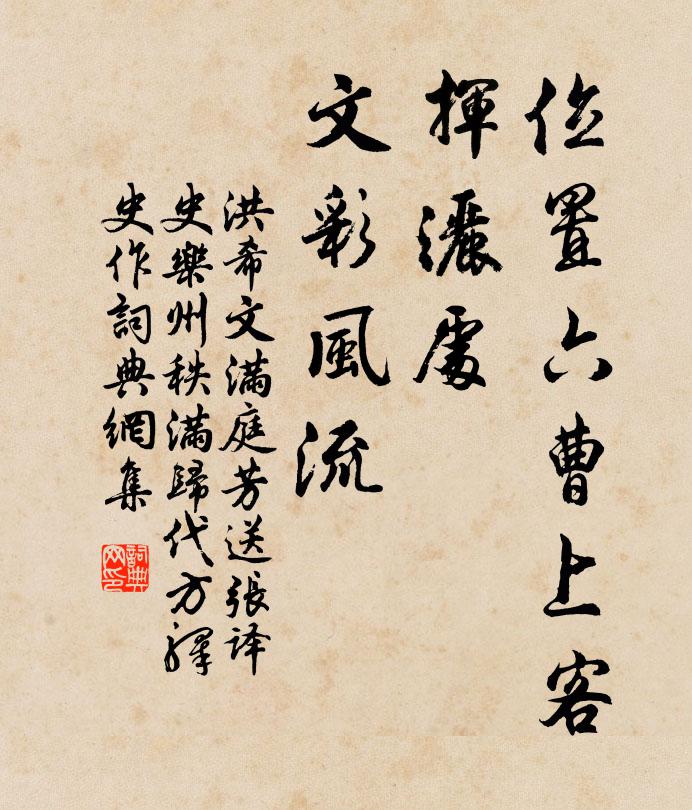 位置六曹上客
揮灑處
文彩風流
洪希文滿庭芳送張译
史樂州秩滿歸代方譯
史作詞典網集
詞典网印